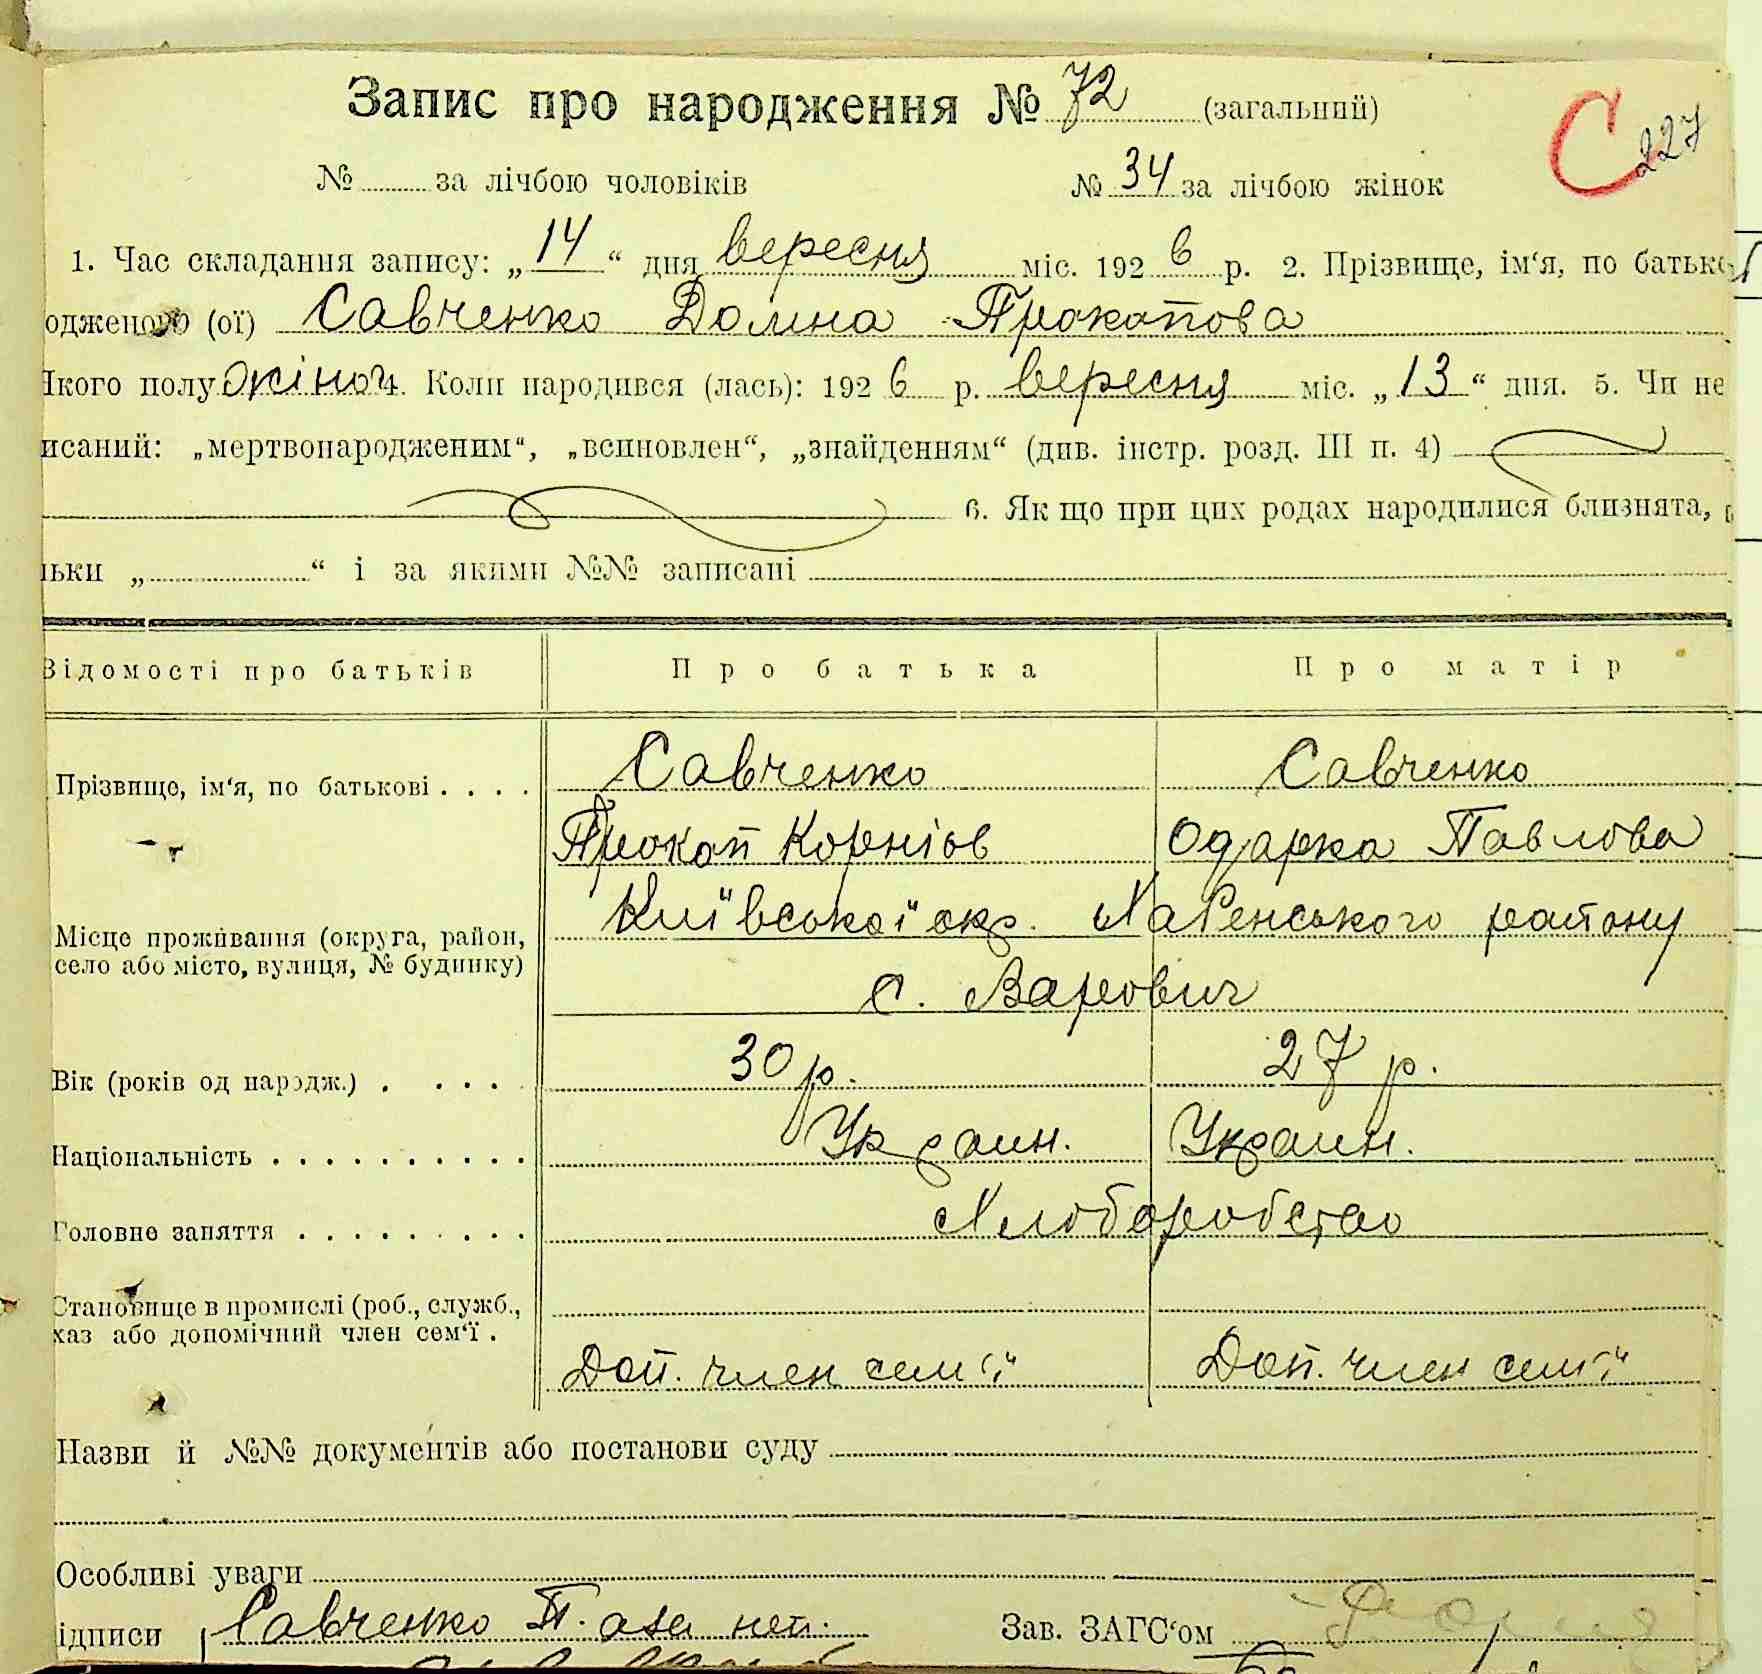 Запис про народження № 72 (загальний)
С 227
№ за лічбою чоловіків № 34 за лічбою жінок
1. Час складання запису: „14“ дня вересня міс. 1926 р. 2. Прізвище, ім‘я, по батько
одженого (ої) Савченко Домна Прокопова
якого полу жіноч. 4. Коли народився (лась): 1926 р. вересня міс. „13“ дня. 5. Чи не
исаний: „мертвонародженим“, „всиновлен“, „знайденням“ (див. інстр. розд. III п. 4)
6. Як що при цих родах народилися близнята,
льки „ “ і за якими №№ записані
Відомості про батьків Про батька Про матір
Прізвище, ім‘я, по батькові . . . . Савченко Савченко
Прокоп Корніїв Одарка Павлова
Місце проживання (округа, район, Київської окр. Хабенського району
село або місто, вулиця, № будинку)
с. Варович
Вік (років од народж.) . . . . 30 р. 27 р.
Національність . . . . . . . . . . Украин. Украин.
Головне заняття . . . . . . . . . Хлоборобство
Становище в промислі (роб., служб.,
хаз або допомічний член сем‘ї .
Доп. член семї Доп. член семї
Назви й №№ документів або постанови суду
Особливі уваги
ідписи Савченко П. Зав. ЗАГС‘ом